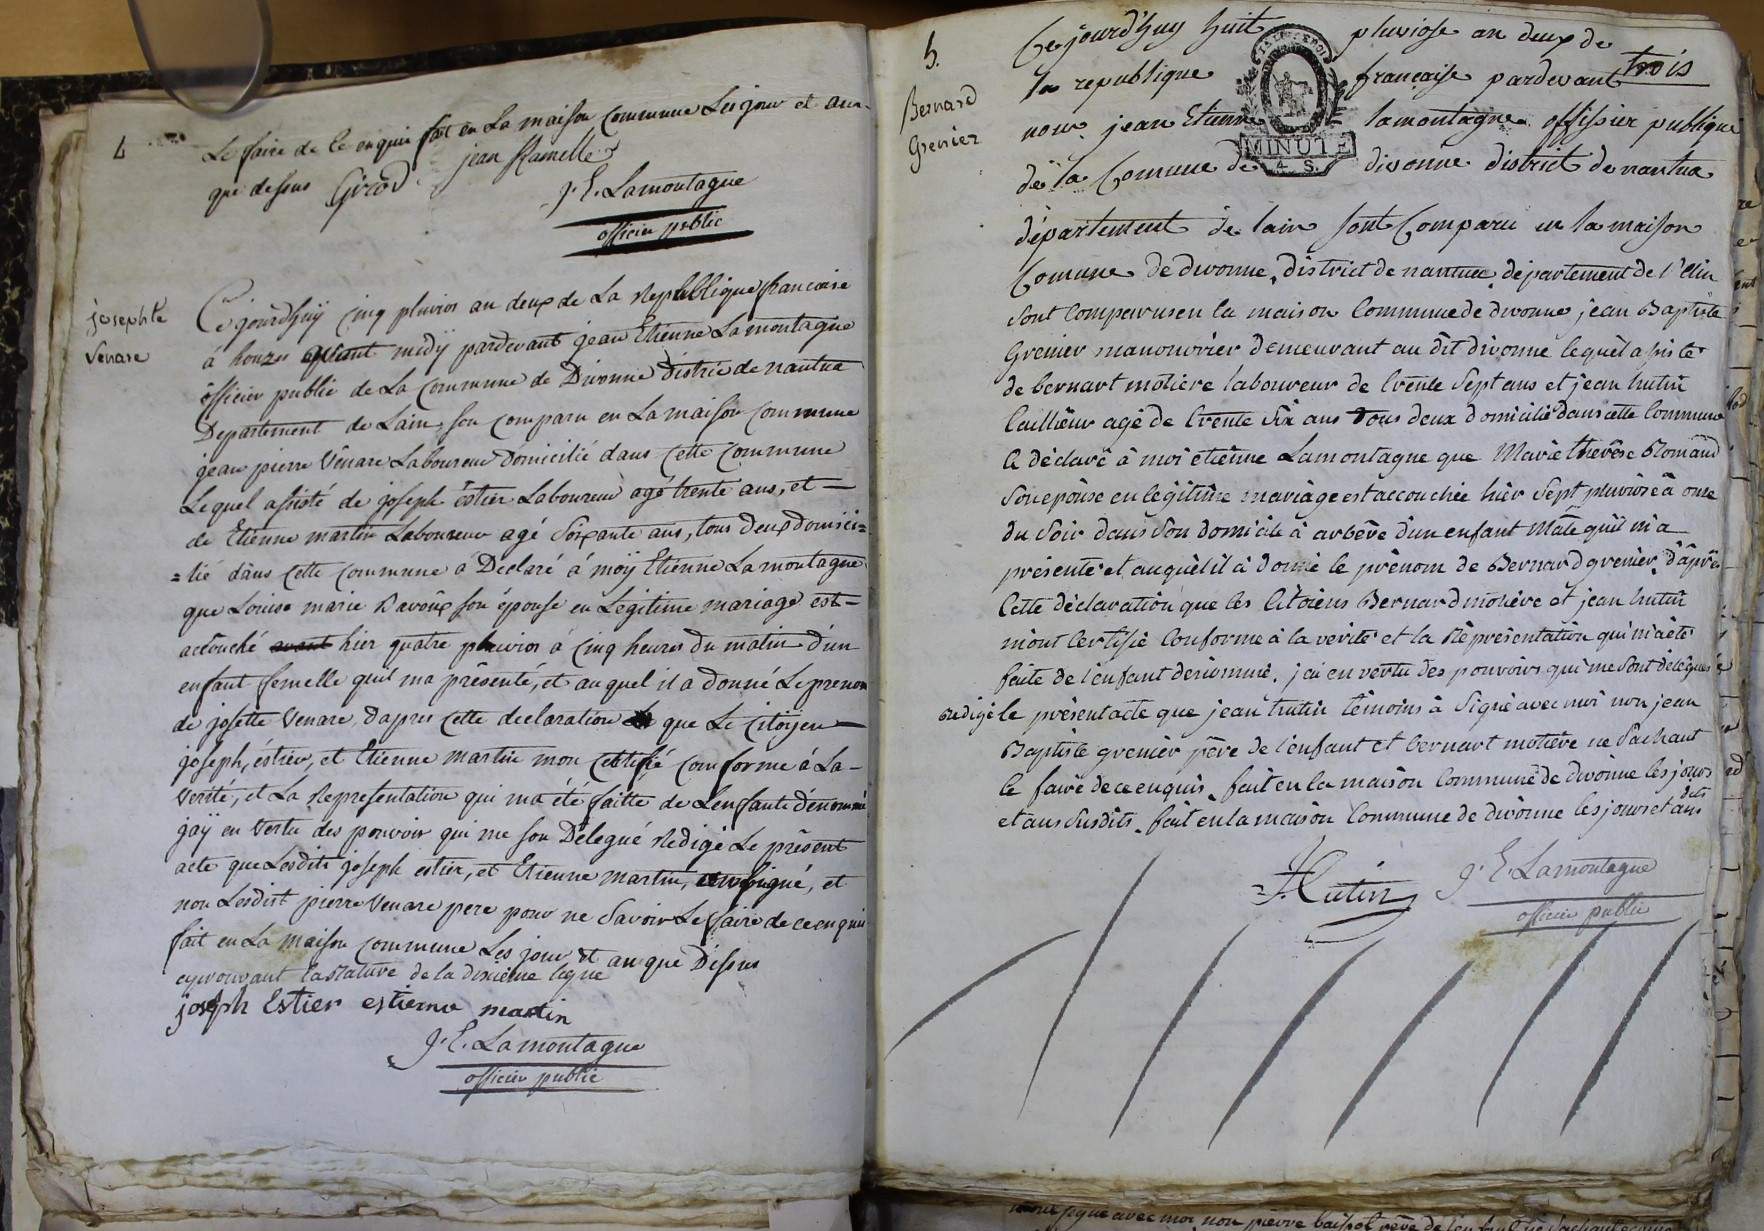 4
Le faire de ce enquis fait en La maison Commune Les jour et an
que dessus Girod jean Ramelle
J. E. Lamontagne
officier public
josephte
Venare
Cejourdhuÿ cinq pluvios an deux de La Republique francoise
á honzes avant midÿ pardevant jean Etienne Lamontagne
officier public de La Commune de Divonne District de nantua
Departement de Lain, son comparu en La maison Commune
jean pierre Venare Laboureur domicilié dans Cette Commune
Lequel assisté de joseph éstier Laboureur agé trente ans, et —
de Etienne martin Laboureur agé Soixante ans, tous deux domici=
=lié dans Cette Commune á Declaré á moÿ Etienne Lamontagne
que Louise marie Davoux son épouse en Legitime mariage est —
accouché avant hier quatre pluvios á Cinq heures du matin d'un
enfant femelle quil ma présenté, et auquel il a donné Le prenom
de josette Venare, dapres Cette declaration que Le Citoÿen —
joseph, éstier, et Etienne martin mon Certifié Conforme á La —
Verité, et La Representation qui ma été faitte de Lenfant dénommé
jaÿ en Vertu des pouvoir qui me son Délegué Redigé Le présent
acte que Lesdits joseph estier, et Etienne martin, on signé, et
non Lesdist pierre Venare pere pour ne Savoir Le faire de ce enquis
fait en La maison Commune Les jour et an que Dessus
aprouvant la rature de la dixieme ligne
joseph Estier estienne martin
J. E. Lamontagne
officier public
5.
Bernard
Grenier
trois
Cejourd'huy huit pluviose an deux de
la republique française pardevant
nous jean Etienne lamontagne offissier publique
de la Comune de divonne district de nantua
MINUTE
4 S.
département de lain sont Comparu en la maison
Comune de divonne, district de nantua, département de l'Ain
sont comparus en la maison Commune de divonne jean Baptiste
Grenier manouvrier demeurant au dit divonne lequel assiste
de bernart moliere laboureur de trente sept ans et jean hutin
tailleur agé de trente six ans tous deux domicilié dans cette Commune
a déclaré à moi etienne Lamontagne que Marie therèse Romand
son epouse en legitime mariage est accouchée hier sept pluviose à onze
du soir dans son domicile à arbère d'un enfant Male qu'il m'a
présenté et auquel il à donné le prénom de Bernard grenier, d'aprés
Cette déclaration que les Citoiens Bernard moliere et jean hutin
m'ont Certifié Conforme à la verité et la Représentation qui m'a été
faite de l'enfant denommé, j'ai en vertu des pouvoirs qui me sont délégués
redigé le présent acte que jean hutin témoins à Signé avec moi non jean
Baptiste grenier père de l'enfant et bernart moliere ne Sachant
le faire de ce enquis, fait en la maison Commune de divonne les jours
et ans susdits, fait en la maison Commune de divonne les jours et ans
dits
JHutin
J. E. Lamontagne
officier public